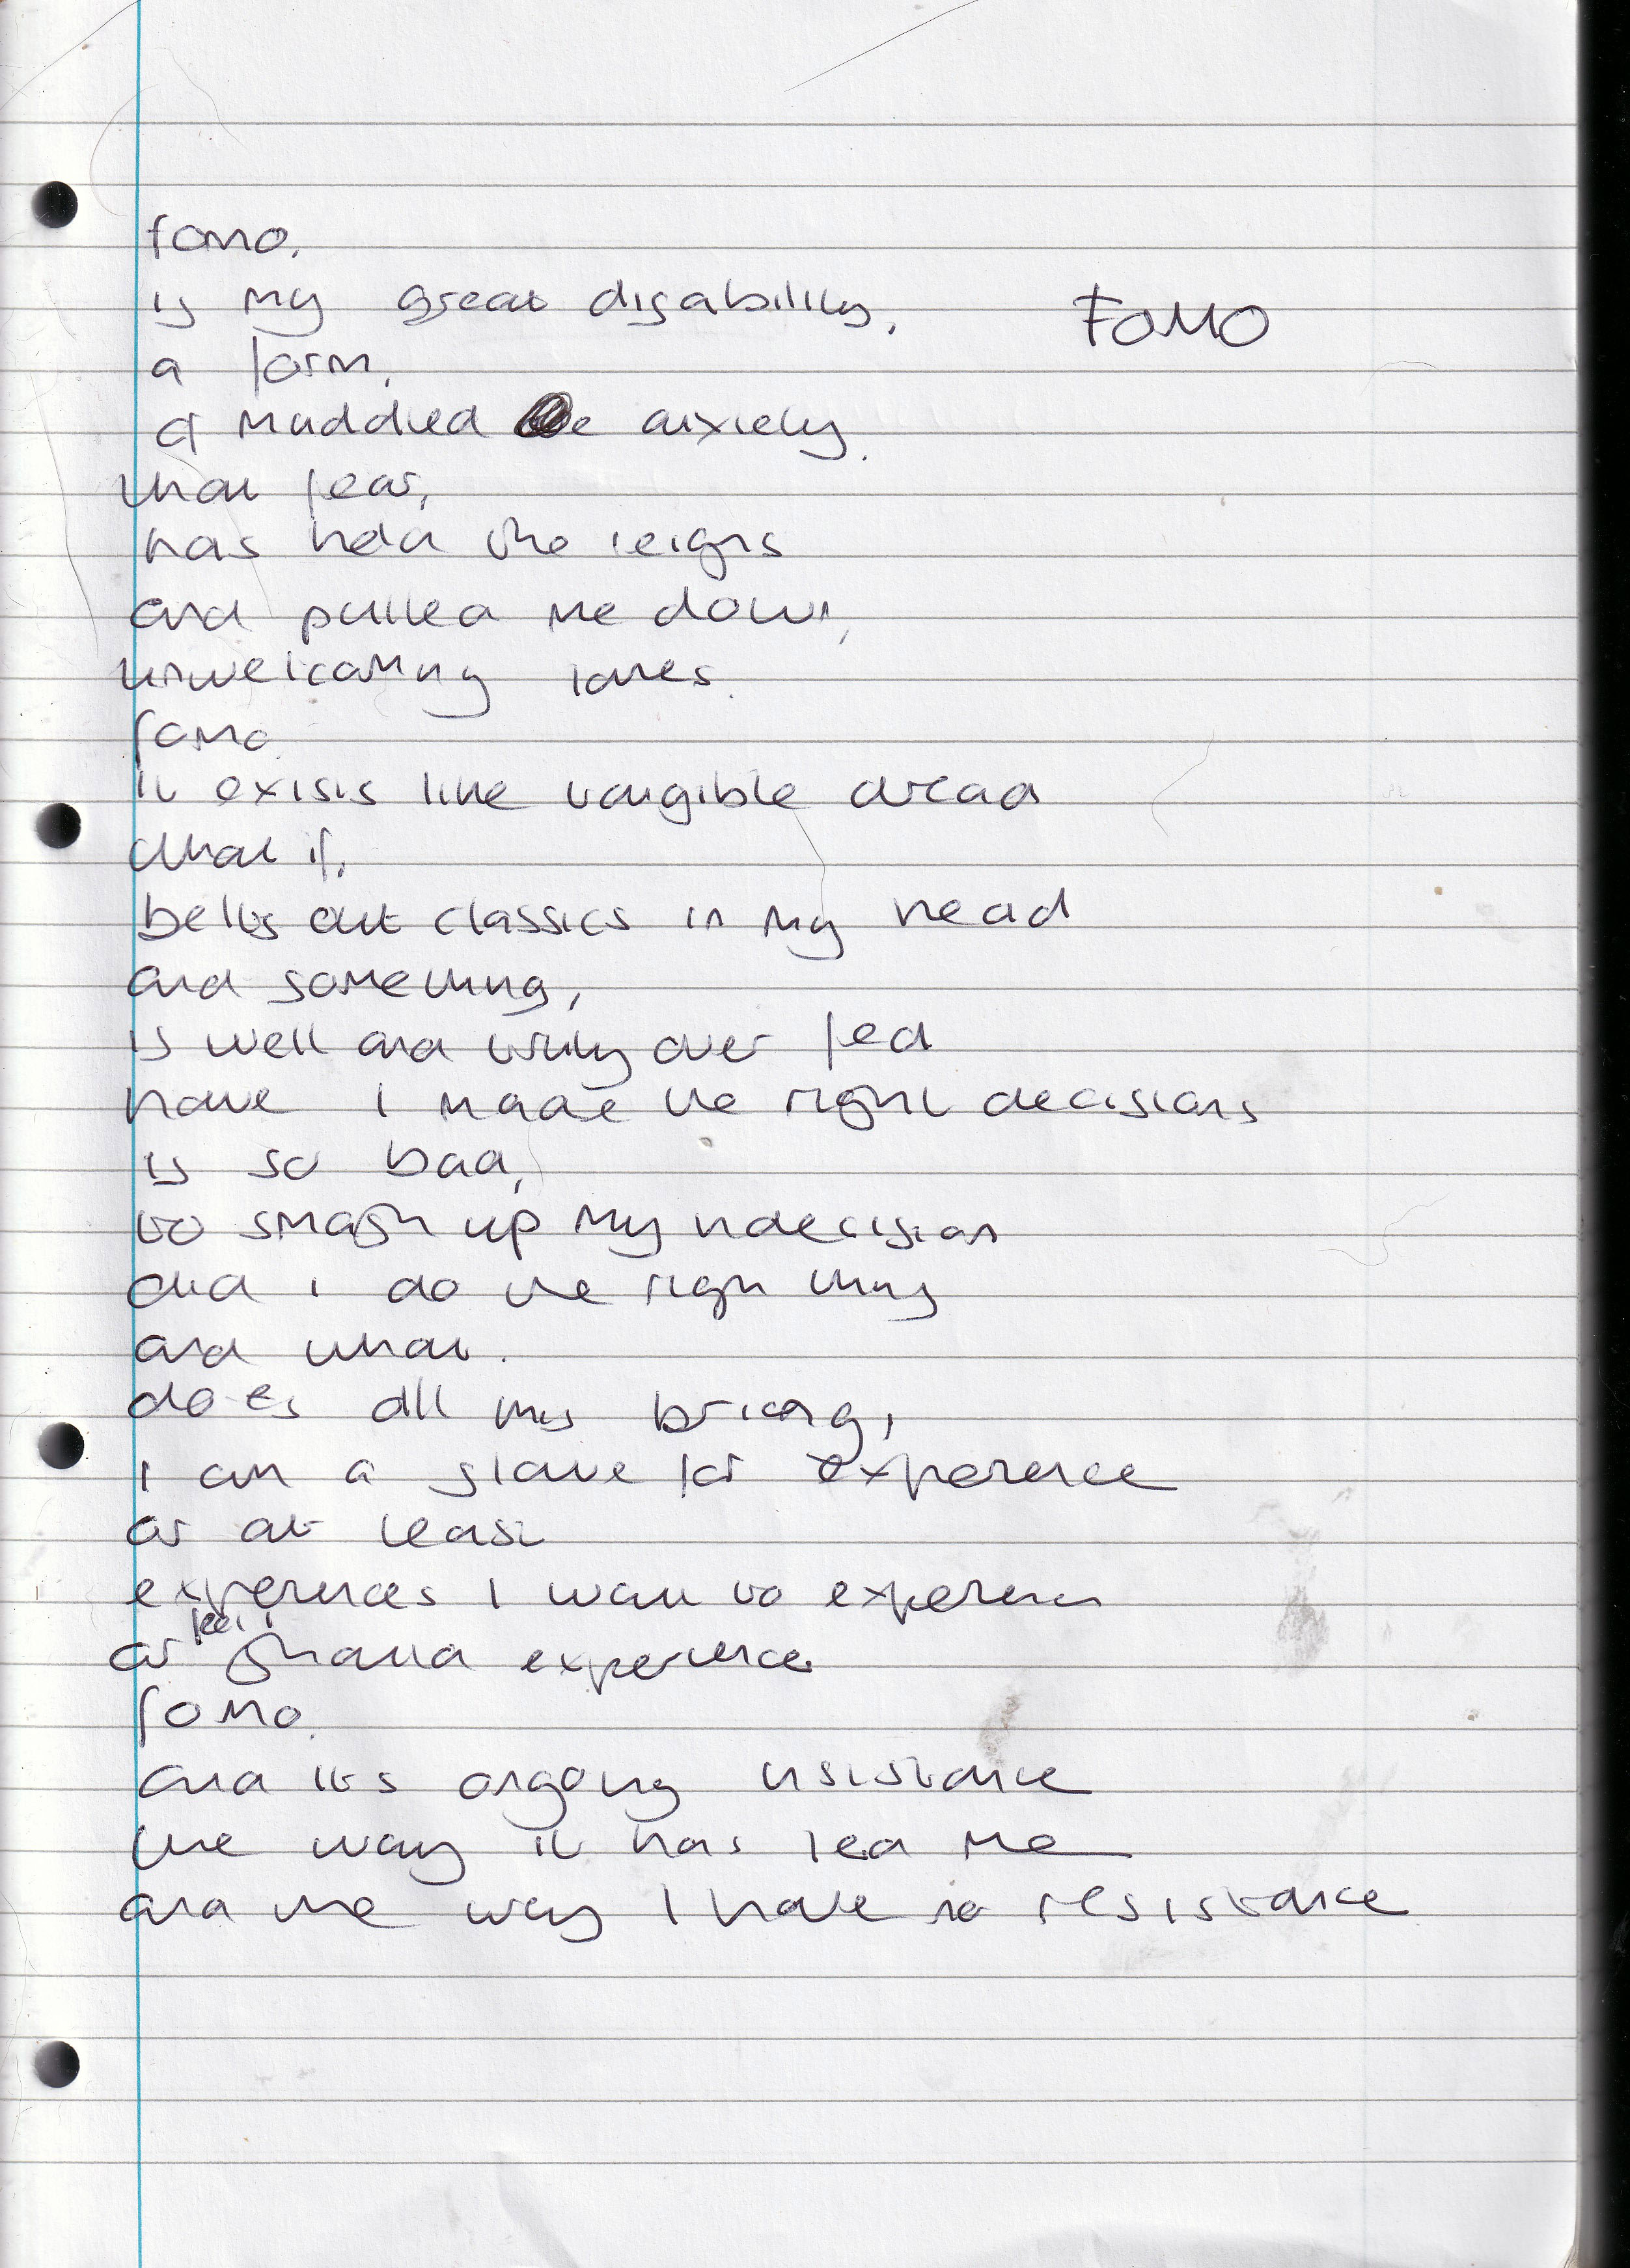 fomo.
is my great disability,
FOMO
a form,
of muddled anxiety.
that fear,
has held the reigns
and pulled me down,
unwelcoming lanes.
fomo
it exists like tangible dread
what if,
belts out classics in my head
and something,
is well and truly over fed
have I made the right decisions
is so bad,
to smash up my indecision
did i do the right thing
and what.
does all this bring,
I am a slave for experience
or at least
experiences I want to experience
or feel i should experience
fomo.
and its ongoing insistance
the way it has led me
and the way I have no resistance